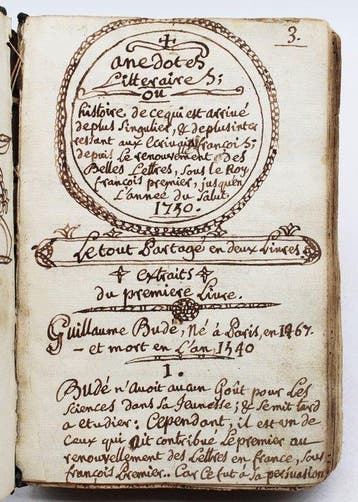 3.
anedotes
Litteraires;
ou
histoire de ce qui est arrivé
de plus Singulier, & de plus inter
ressant aux Ecrivains françois;
depuis Le renouvement des
Belles Lettres, sous Le Roy
françois premier, jusqu'en
L'année du Salut,
1750.
Le tout Partagé en deux Livres.
extraits
du premiere Livre.
Guillaume Budé, Né à Paris, en 1467.
- et mort en L'an 1540
I.
Budé n'avoit aucun Goût pour Les
Sciences dans Sa Jeunesse; & Se mit tard
a etudier: Cependant, il est un de
Ceux qui ait contribué Le premier au
renouvellement des Lettres en france, Sous
françois Premier. Car Ce fut à Sa persuasion